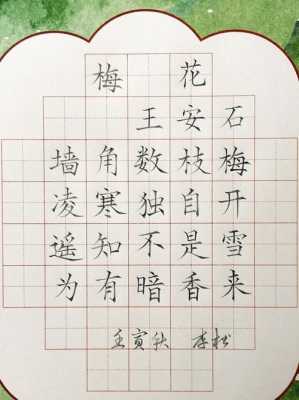 梅花
王安石
墙角数枝梅
凌寒独自开
遥知不是雪
为有暗香来
壬寅秋 李松